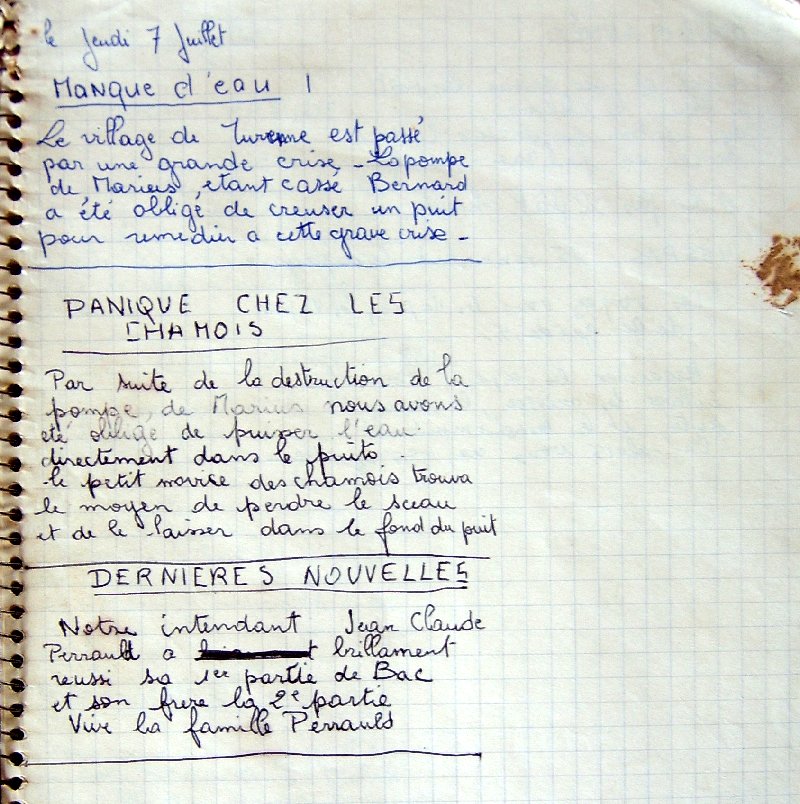 le Jeudi 7 Juillet
Manque d'eau !
Le village de Turenne est passé
par une grande crise - La pompe
de Marius, etant cassé Bernard
a été obligé de creuser un puit
pour remedier a cette grave crise -
PANIQUE CHEZ LES
CHAMOIS
Par suite de la destruction de la
pompe, de Marius nous avons
eté obligé de puiser l'eau
directement dans le puits.
le petit novice des chamois trouva
le moyen de perdre le sceau
et de le laisser dans le fond du puit
DERNIERES NOUVELLES
Notre intendant Jean Claude
Perrault a brillament
reussi sa 1ere partie de Bac
et son frere la 2e partie
Vive la famille Perraults